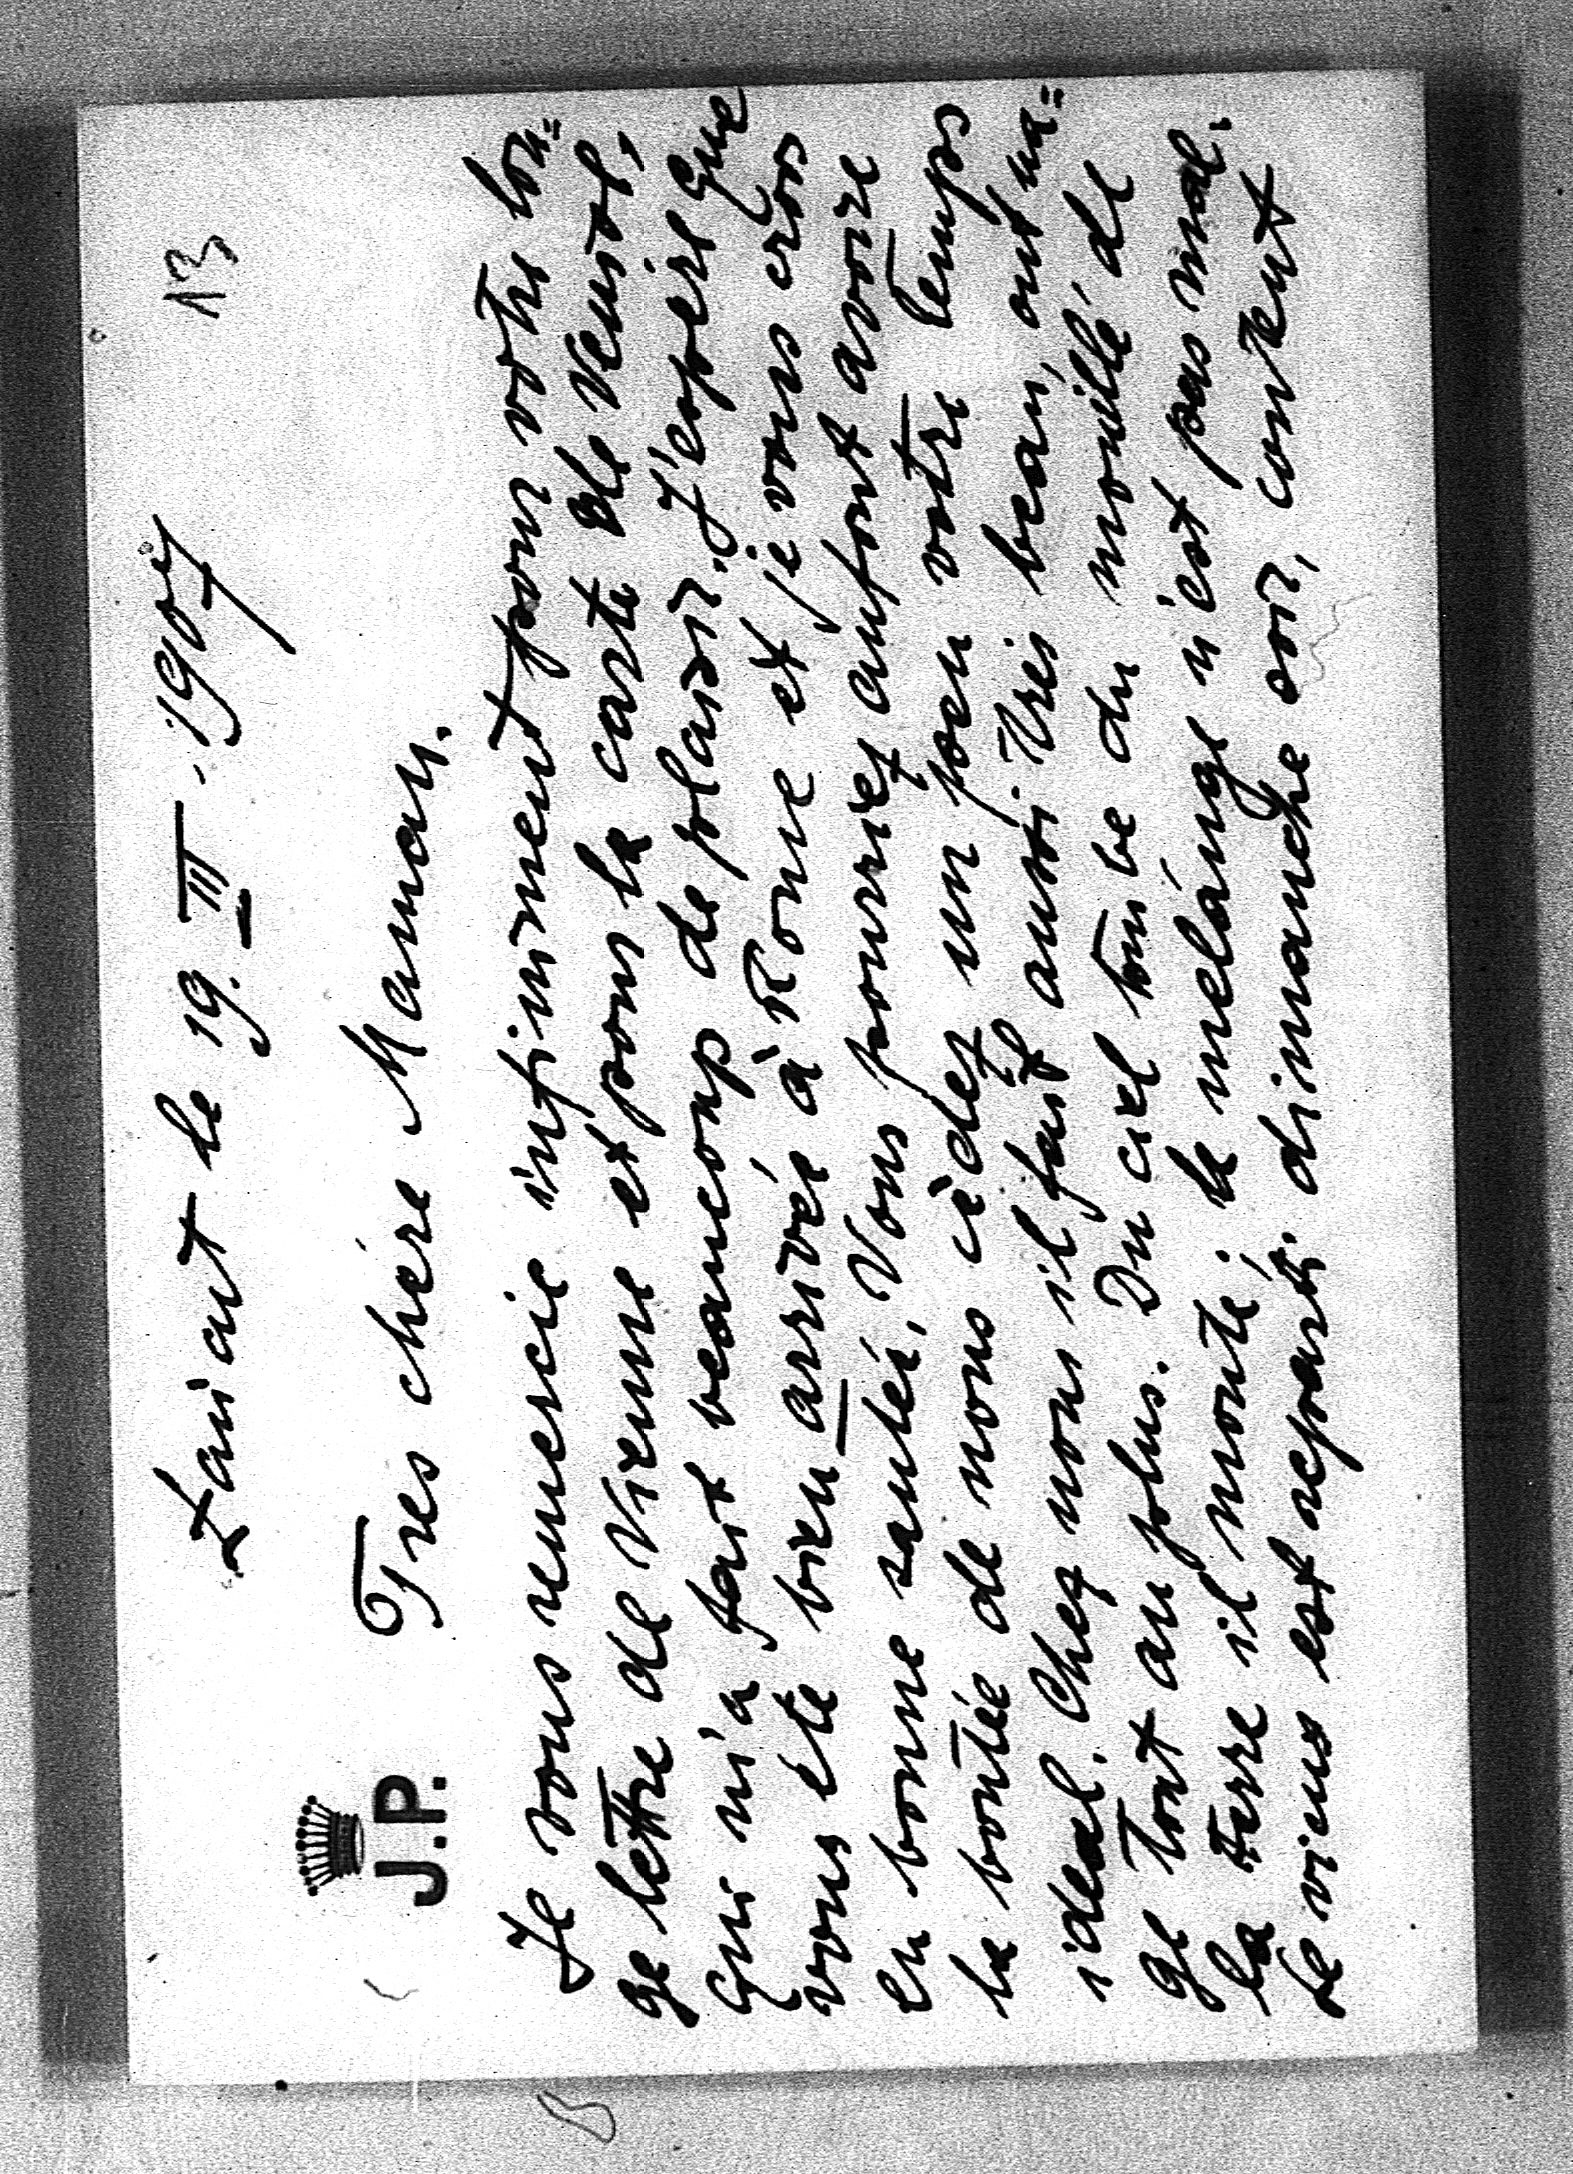 13
Lańcut le 19. III. 1907
J.P.
Tres chère Maman.
Je vous remercie infiniment pour votre lon=
ge lettre de Vienne et pour la carte de
qui m'a fait beaucoup de plaisir. J'espere que
vous ete bien arrivée à Rome et je vous crois
en bonne santée, Vous pourriez aufont avoire
la bontée de nous cèdez un peu votre temps
ideal. Chez nous il fait aussi tres beau, ont na=
ge tout au plus. Du ciel tombe du mouillé, de
la terre il monté; le melánge n'est pas mal.
Le vieux est reparti dimanche soir, content